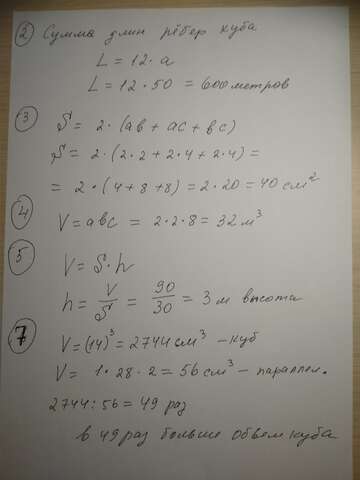 2 Сумма длин рёбер куба
L = 12 · a
L = 12 · 50 = 600 метров
3 S = 2 · (ab + ac + bc)
S = 2 · (2 · 2 + 2 · 4 + 2 · 4) =
= 2 · (4 + 8 + 8) = 2 · 20 = 40 см²
4 V = abc = 2 · 2 · 8 = 32 м³
5 V = S · h
h = V/S = 90/30 = 3 м высота
7 V = (14)³ = 2744 см³ - куб
V = 1 · 28 · 2 = 56 см³ - параллел.
2744 : 56 = 49 раз
в 49 раз больше объем куба